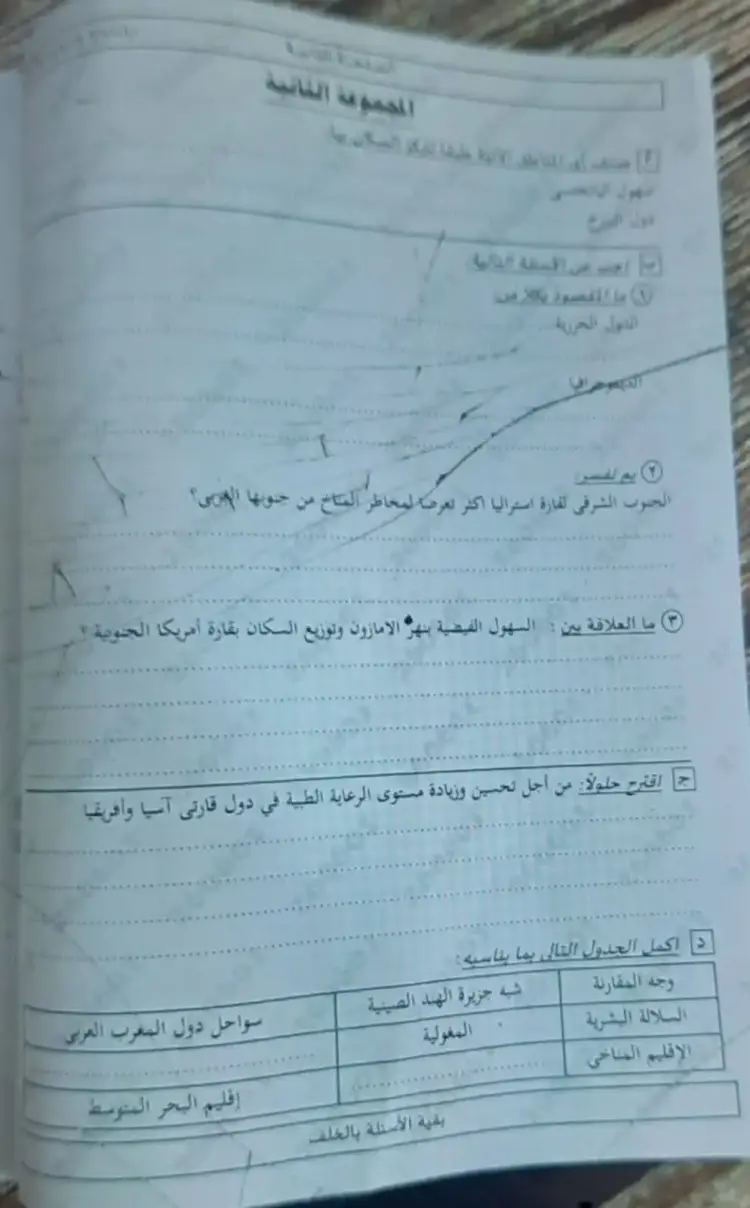 المجموعة الثانية
أ صنف أي المناطق الآتية طبقا لتركز السكان بها
سهول اليانجتسى
دول النرويج
ب اجب عن الأسئلة التالية
١ ما المقصود بكلا من
الدول الجزرية
الديموجرافيا
٢ بم تفسر:
الجنوب الشرقى لقارة استراليا اكثر تعرضا لمخاطر المناخ من جنوبها الغربى؟
٣ ما العلاقة بين : السهول الفيضية بنهر الامازون وتوزيع السكان بقارة أمريكا الجنوبية ؟
ج اقترح حلولاً: من أجل تحسين وزيادة مستوى الرعاية الطبية في دول قارتى آسيا وأفريقيا
د اكمل الجدول التالى بما يناسبه:
وجه المقارنة شبه جزيرة الهند الصينية سواحل دول المغرب العربى
السلالة البشرية المغولية
الإقليم المناخى إقليم البحر المتوسط
بقية الأسئلة بالخلف